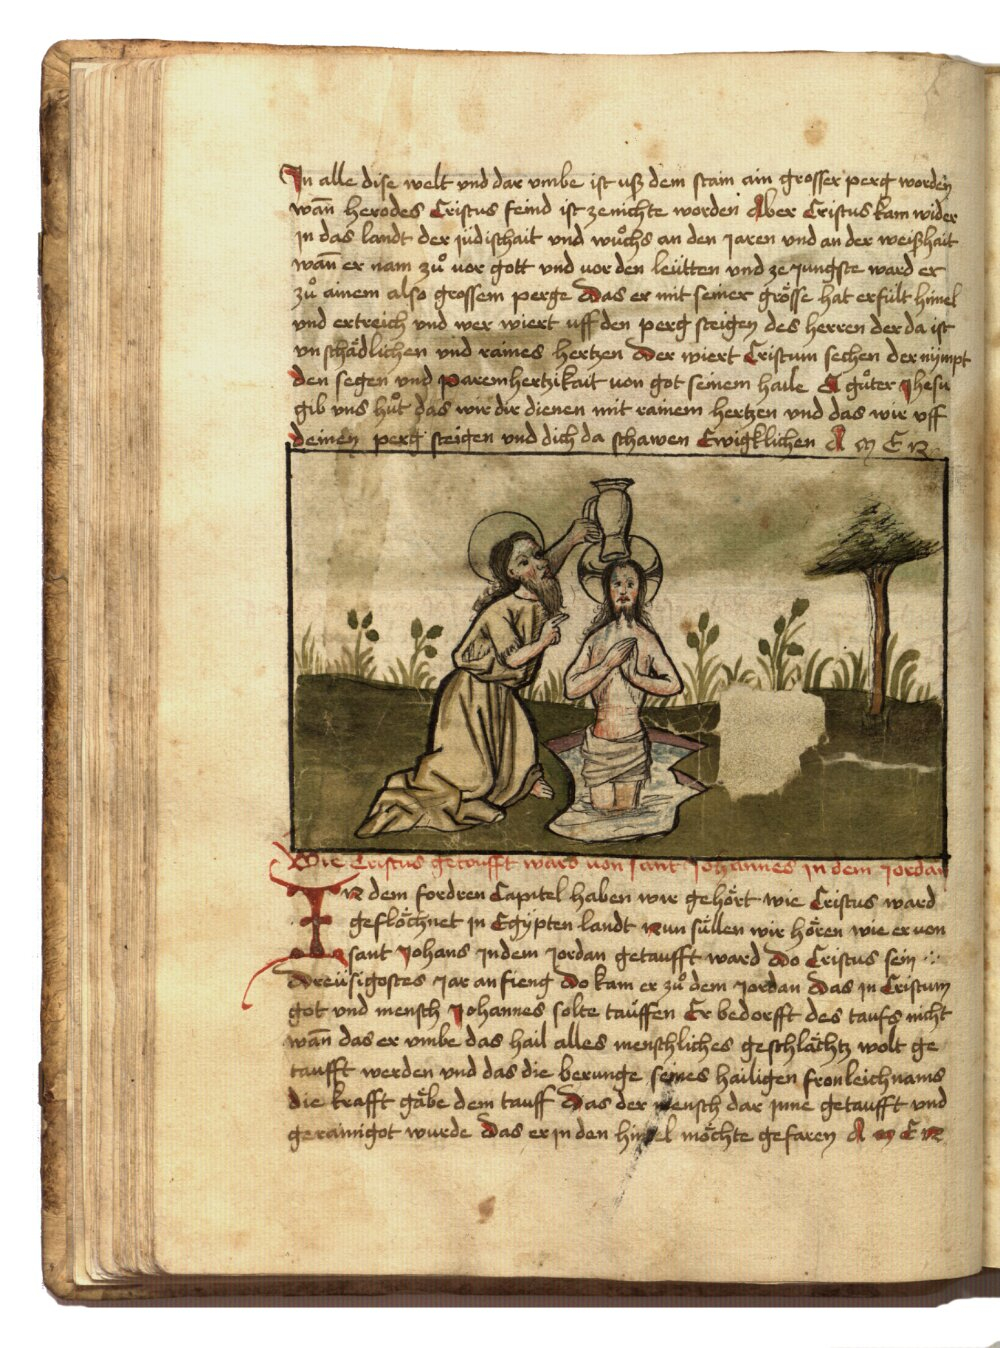 In alle dise welt vnd dar vmbe ist uß dem stain ain grosser perg worden
wan̄ herodes Cristus feind ist zenichte worden Aber Cristus kam wider
in das landt der jüdischait vnd wůchs an den jaren vnd an der weißhait
wan̄ er nam zů vor gott vnd vor den leütten vnd ze jungste ward er
zů ainem also grossem perge Das er mit seiner grösse hat erfült himel
vnd ertreich vnd wer wiert uff den perg steigen des herren der da ist
vnschädlichen vnd raines hertzen Der wiert Cristum sechen der nÿmpt
den segen vnd Paremhertzikait von got seinem haile O gůter Jhesu
gib vns hůt das wir dir dienen mit rainem hertzen vnd das wir uff
deinen perg steigen vnd dich da schawen Ewigklichen A M E N
Wie Cristus getaufft ward von sant Johannes in dem jordan
IN dem fordren Capitel haben wir gehört wie Cristus ward
geflöchnet in Egÿpten landt Nun süllen wir hören wie er von
sant Johans in dem jordan getaufft ward Do Cristus sein
dreüsigostes jar anfieng Do kam er zů dem jordan Das in Cristum
got vnd mensch Johannes solte tauffen Er bedorfft des taufs nicht
wan̄ das er vmbe das hail alles menschliches geschlächtz wolt ge
taufft werden vnd das die berunge seines hailigen fronleichnams
die krafft gäbe dem tauff Das der mensch dar jnne getaufft vnd
gerainigot wurde Das er in den himel möchte gefaren A M E N